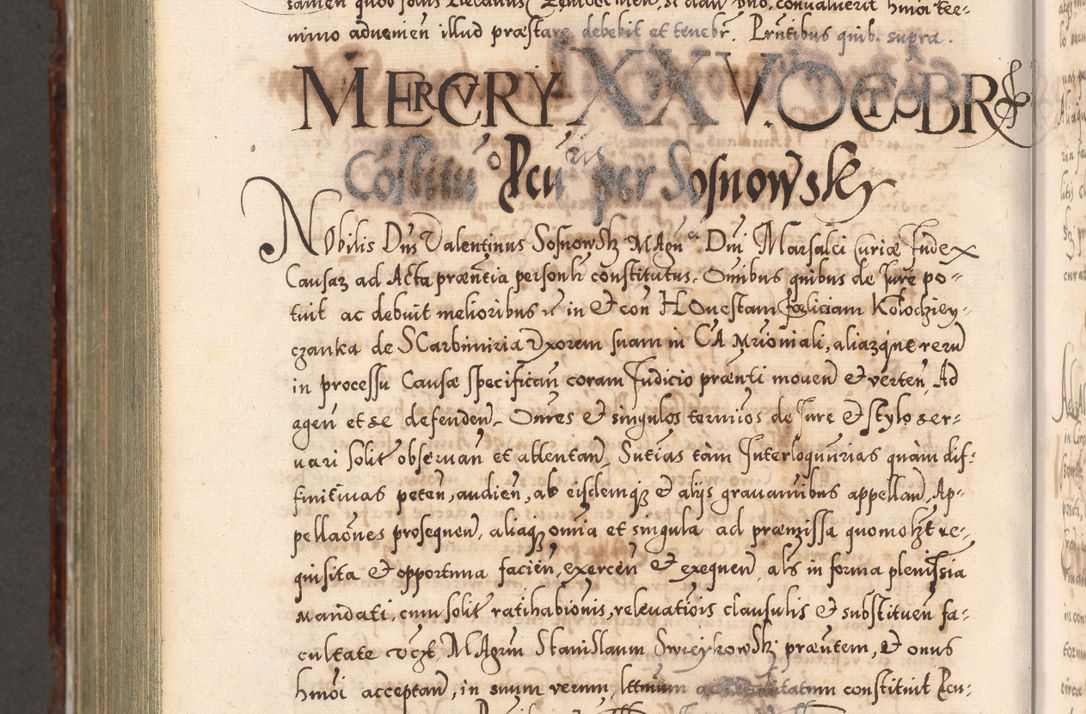 nimo aduemen illud præstare debebit et tenebr. Pruntibus quib. supra.
MERCVRY XXV. OCTOBR
Costitu° Pcuris per Sosnowsky
NObilis Dns Valentinus Sosnowsky MAgci Dni Marsalci Curiæ Iudex
Causaz ad Acta præntia personlr constitutus. Omnibus quibus de jure po-
tuit ac debuit melioribus in et con HOnestam fœliciam Kołodziey-
czanka de SCarbimiria Vxorem suam in CA Mrioniali, aliazqme reru
in processu Causæ specifican coram Judicio prænti mouen et verten, Ad
agen et se defenden. Omnes et singulos terminos de Jure et stylo ser-
uari solit obseruan et attentan, Sntias tàm Interloqunrias quàm dif-
finitiuas peten, audien, ab eisdemqz et alijs grauaminibus appellan, Ap-
pellaones prosequen, aliaqz omia et singula ad præmissa quomolzt re-
quisita et opportuna facien, exercen et exequen, als in forma plenissia
mandati, cum solit ratihabionis, relevatiois clausulis et substituen fa-
cultate vczt MAgrum Stanislaum Swieykowski præntem, et onus
hmoi acceptan, in suum verum, lttimum constituit Pcu-